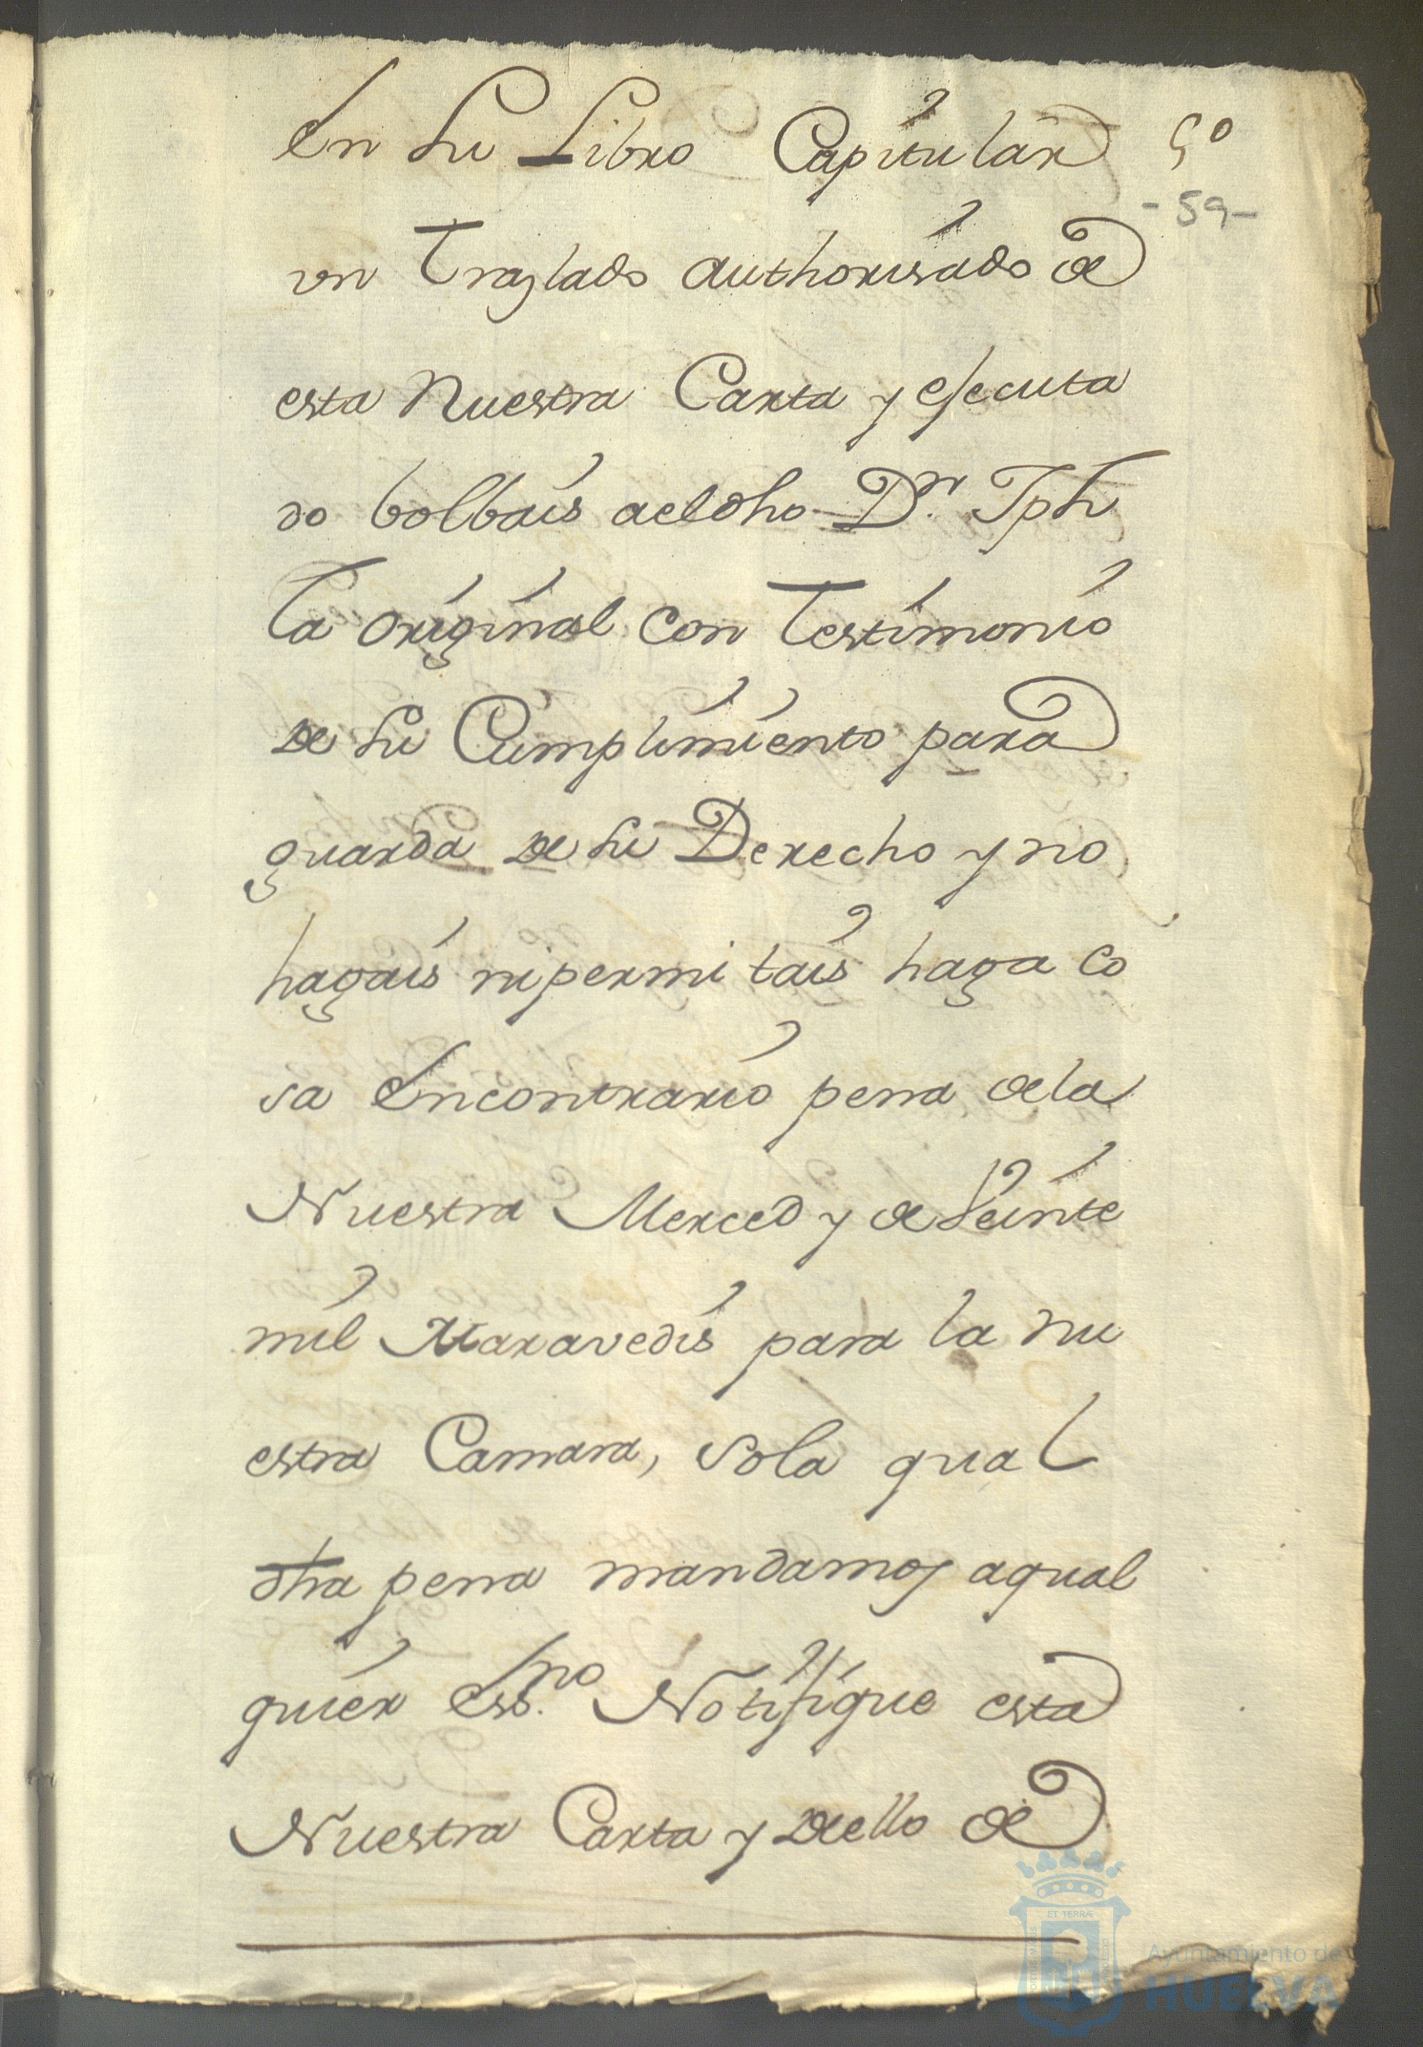 En su Libro Capitular 5º
-59-
vn Traslado authorisado de
esta nuestra Carta y efecuta
do bolbais aeldho Dn. Jph
la original con Testimonio
de su Cumplimiento para
guarda de su Derecho y no
hagais nipermi tais haga co
sa encontrario pena dela
Nuestra Merced y de Veinte
mil Maravedis para la nu
estra Camara, sola qual
dha pena mandamos aqual
quier essno. Notifique esta
Nuestra Carta y dello de
ET TERRÆ
Ayuntamiento de
HUELVA